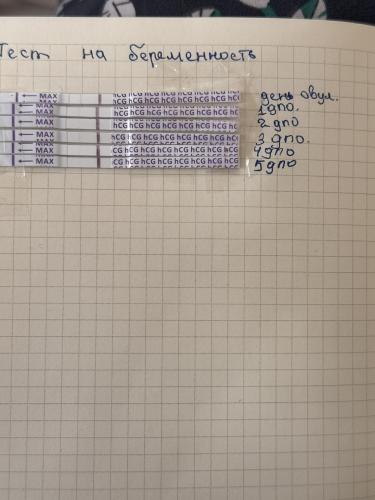 Тест на беременность
← MAX hCG hCG hCG hCG hCG hCG hCG hC день овул.
← MAX hCG hCG hCG hCG hCG hCG hCG hCG 1 дпо.
← MAX hCG hCG hCG hCG hCG hCG hCG hCG 2 дпо
← MAX hCG hCG hCG hCG hCG hCG hCG hCG 3 дпо.
← MAX CG hCG hCG hCG hCG hCG hCG hCG 4 дпо
← MAX CG hCG hCG hCG hCG hCG hCG hCG 5 дпо